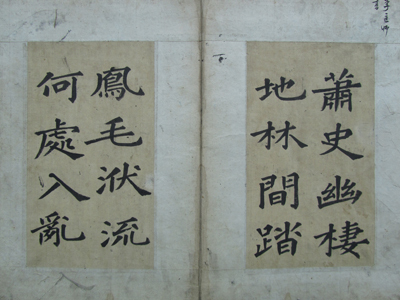 蕭史幽棲
地林間踏
鳳毛洑流
何處入亂